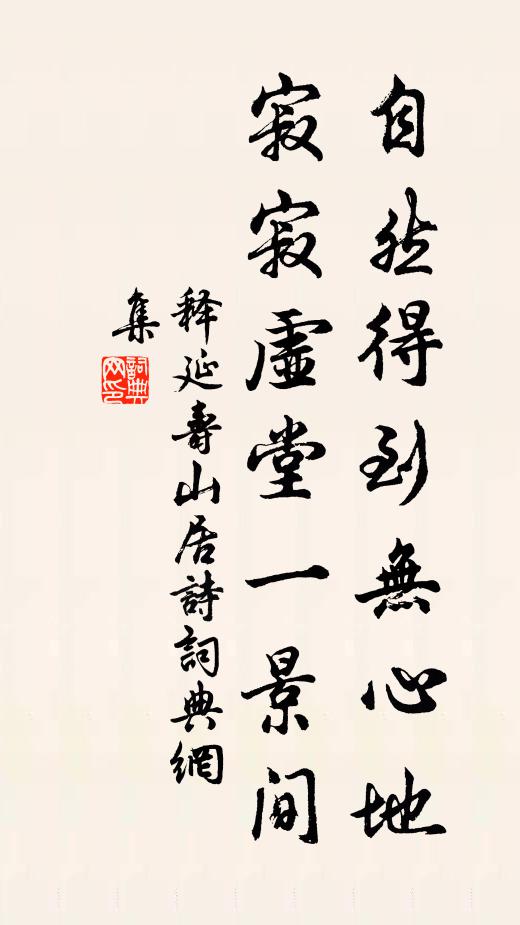 自然得到無心地
寂寂虛堂一景间
释延壽山居詩詞典網
集
詞典網印